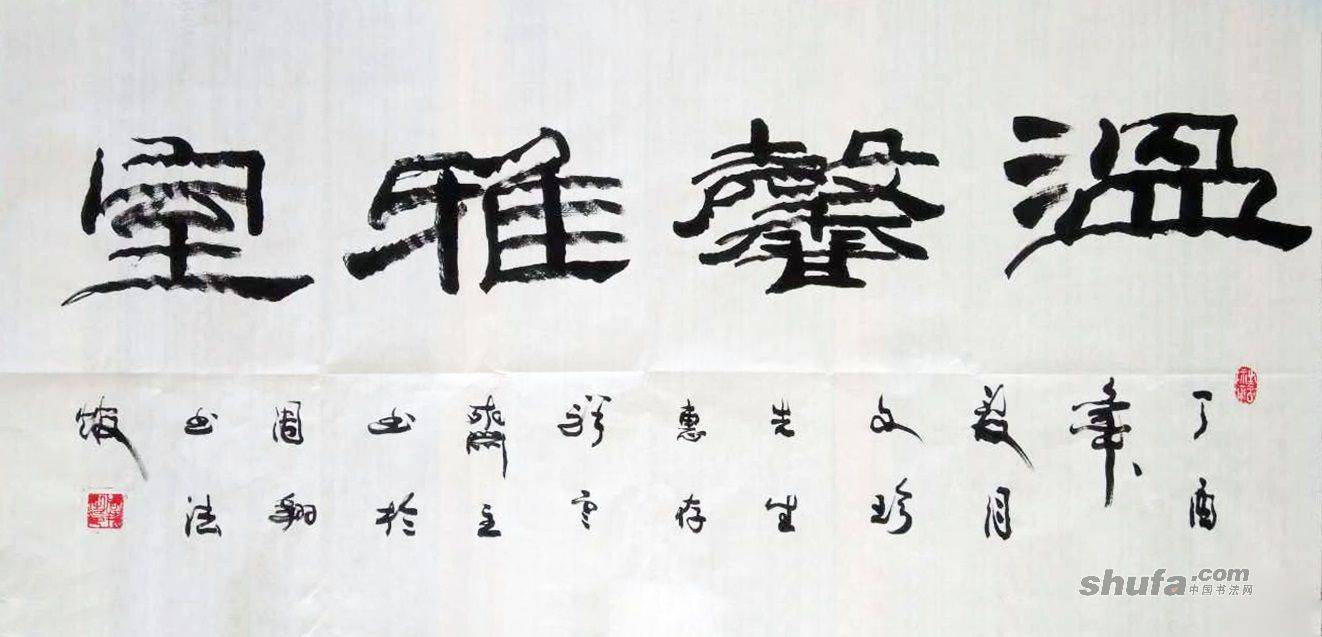 溫馨雅室
丁酉
年
菊月
文珍
先生
惠存
祥雲
齋主
书於
周翔
书法
馆
shufa.com
中国书法网